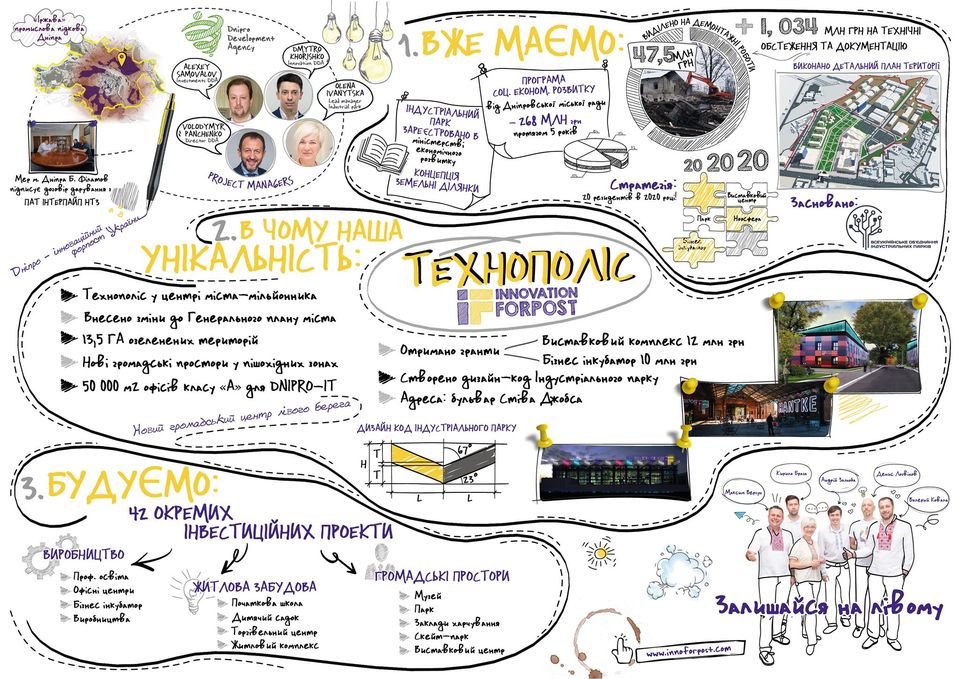 «Іржава»
промислова підкова
Дніпра
Dnipro
Development
Agency
ALEXEY
SAMOVALOV
Investments DDA
DMYTRO
KHORISHKO
Innovation DDA
OLENA
IVANYTSKA
Lead manager
VOLODYMYR
PANCHENKO
Director DDA
PROJECT MANAGERS
Мер м. Дніпра Б. Філатов
підписує договір дарування з
ПАТ ІНТЕРПАЙП НТЗ
Дніпро - інноваційний
форпост України
1. ВЖЕ МАЄМО:
ІНДУСТРІАЛЬНИЙ
ПАРК
ЗАРЕЄСТРОВАНО В
міністерстві
економічного
розвитку
КОНЦЕПЦІЯ
ЗЕМЕЛЬНІ ДІЛЯНКИ
ПРОГРАМА
СОЦ. ЕКОНОМ. РОЗВИТКУ
від Дніпровської міської ради
- 268 МЛН грн
протягом 5 років
ВИДІЛЕНО НА ДЕМОНТАЖНІ РОБОТИ
47,5 МЛН
ГРН
+ 1, 034 МЛН ГРН НА ТЕХНІЧНІ
ОБСТЕЖЕННЯ ТА ДОКУМЕНТАЦІЮ
ВИКОНАНО ДЕТАЛЬНИЙ ПЛАН ТЕРИТОРІЇ
20 20 20
Стратегія:
20 резидентів в 2020 році!
Виставковий
центр
Парк
Ноосфера
Бізнес
інкубатор
Засновано:
ВСЕУКРАЇНСЬКЕ ОБ'ЄДНАННЯ
ІНДУСТРІАЛЬНИХ ПАРКІВ
2. В ЧОМУ НАША
УНІКАЛЬНІСТЬ:
Технополіс у центрі міста-мільйонника
Внесено зміни до Генерального плану міста
13,5 ГА озеленених територій
Нові громадські простори у пішохідних зонах
50 000 м2 офісів класу «А» для DNIPRO-IT
Новий громадський центр лівого берега
ТЕХНОПОЛІС
IF INNOVATION
FORPOST
Отримано гранти
Виставковий комплекс 12 млн грн
Бізнес інкубатор 10 млн грн
Створено дизайн-код Індустріального парку
Адреса: бульвар Стіва Джобса
ДИЗАЙН КОД ІНДУСТРІАЛЬНОГО ПАРКУ
H
T
T
67°
123°
L
L
3. БУДУЄМО:
42 ОКРЕМИХ
ІНВЕСТИЦІЙНИХ ПРОЕКТИ
ВИРОБНИЦТВО
Проф. освіта
Офісні центри
Бізнес інкубатор
Виробництва
ЖИТЛОВА ЗАБУДОВА
Початкова школа
Дитячий садок
Торгівельний центр
Житловий комплекс
ГРОМАДСЬКІ ПРОСТОРИ
Музей
Парк
Заклади харчування
Скейт-парк
Виставковий центр
Залишайся на лівому
www.innoforpost.com